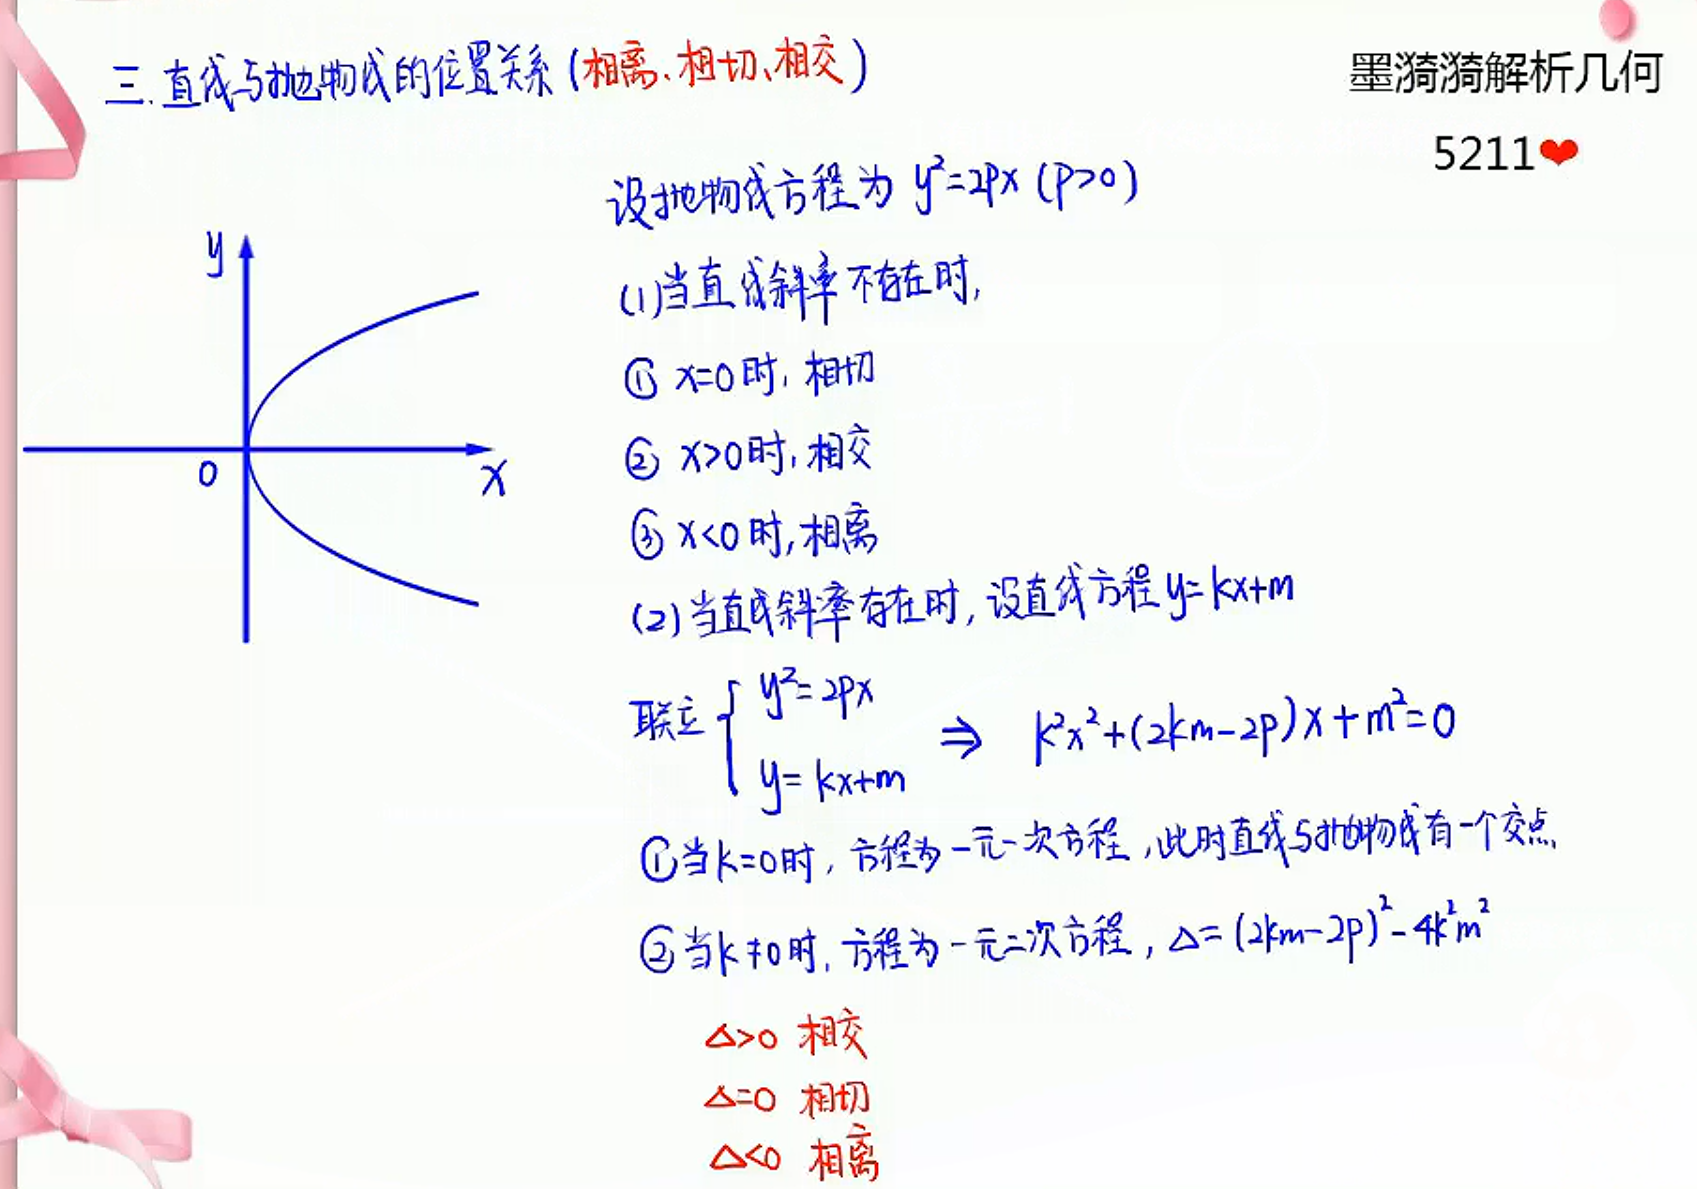 三.直线与抛物线的位置关系(相离、相切、相交)
墨漪漪解析几何
5211❤
设抛物线方程为 y²=2px (p>0)
(1)当直线斜率不存在时,
① x=0时,相切
② x>0时,相交
③ x<0时,相离
(2)当直线斜率存在时,设直线方程y=kx+m
联立 { y²=2px
y=kx+m
⇒ k²x²+(2km-2p)x+m²=0
①当k=0时,方程为一元一次方程,此时直线与抛物线有一个交点
②当k≠0时,方程为一元二次方程,Δ=(2km-2p)²-4k²m²
Δ>0 相交
Δ=0 相切
Δ<0 相离
y
0
x